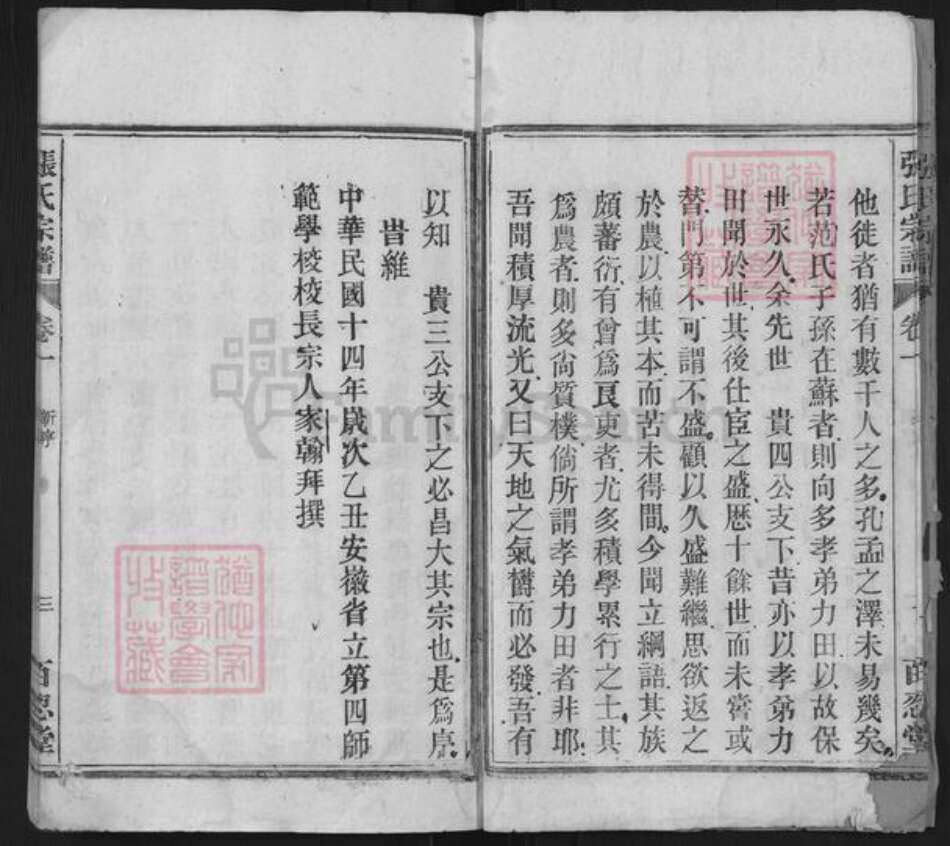 他徒者猶有數千人之多孔孟之澤未易幾矣
若范氏子孫在蘇者則向多孝弟力田以故保
世永久余先世　貴四公支下昔亦以孝弟力
田聞於世其後仕宦之盛歷十餘世而未嘗或
替門第不可謂不盛顧以久盛難繼思欲返之
於農以植其本而苦未得間今聞立綱語其族
頗蕃衍有曾爲良吏者尤多積學累行之士其
爲農者則多尙質樸倘所謂孝弟力田者非耶
吾聞積厚流光又曰天地之氣欎而必發吾有
張氏宗譜
卷一
百忍堂
以知　貴三公支下之必昌大其宗也是爲序
旹維
中華民國十四年歲次乙丑安徽省立第四師
範學校校長宗人家翰拜撰
張氏宗譜
卷一
新序
三
百忍堂
猶他家
譜學會
收藏
猶他家
譜學會
收藏
FamilySearch